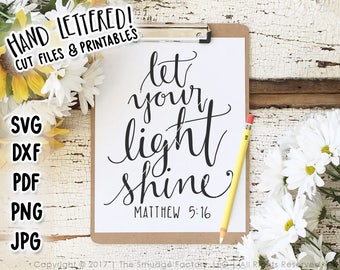 HAND LETTERED!
CUT FILES & PRINTABLES
let
your
light
shine
MATTHEW 5:16
SVG
DXF
PDF
PNG
JPG
Copyright © 2017 The Smudge Factory